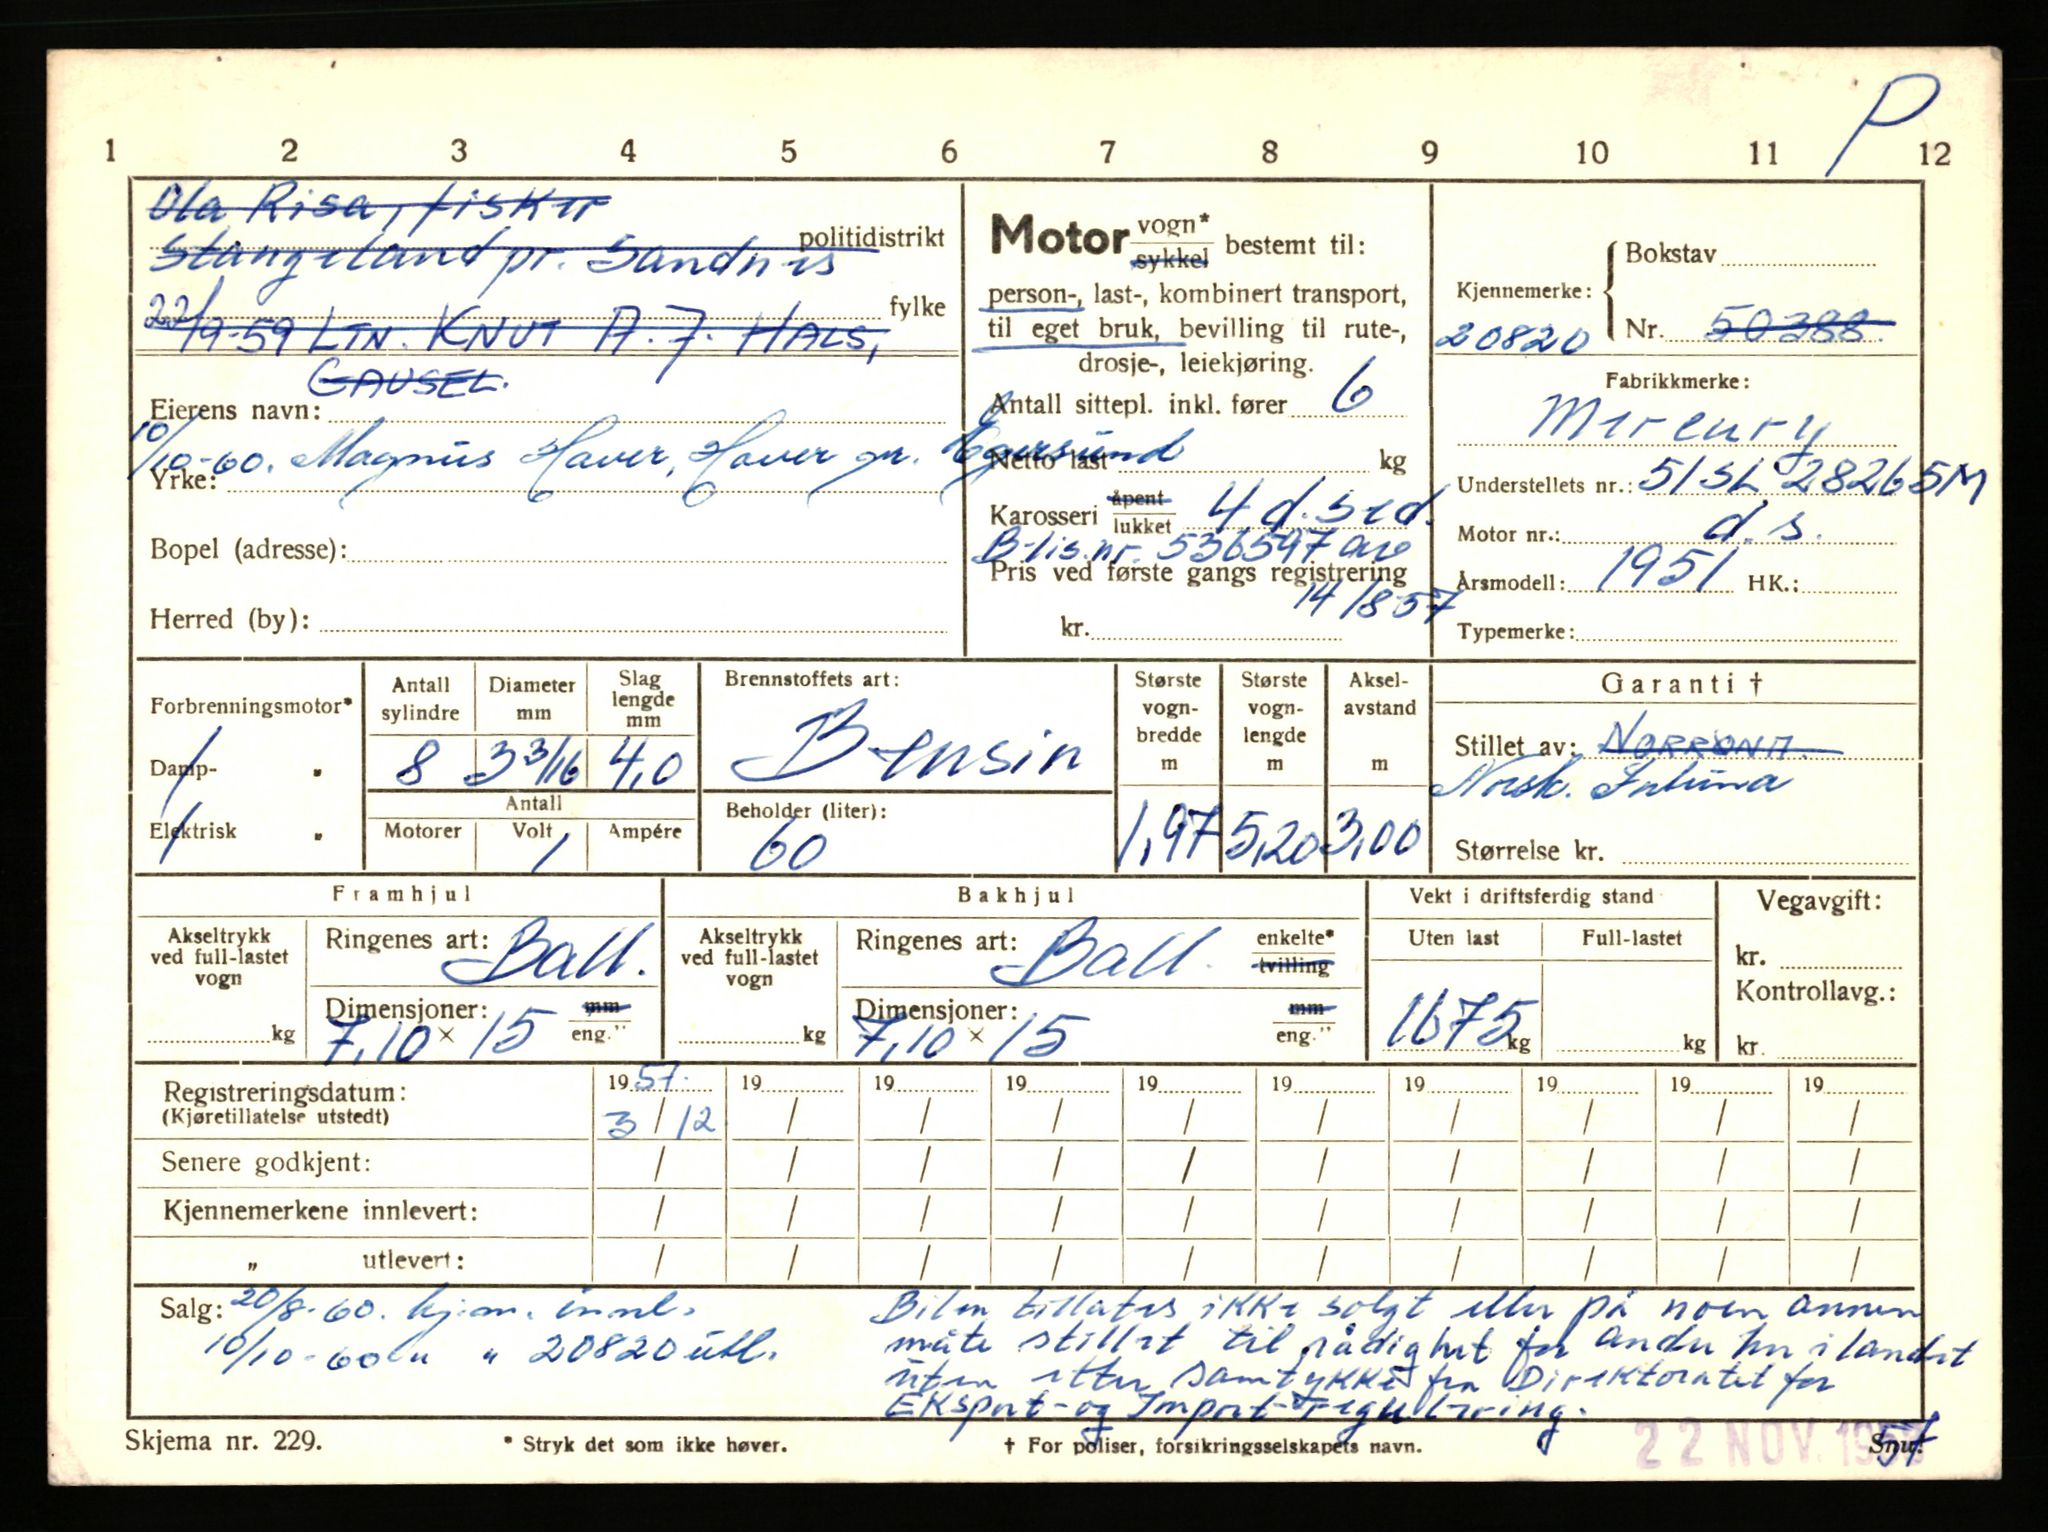 P
1 2 3 4 5 6 7 8 9 10 11 12
Ola Risa, fisker
politidistrikt
Stangeland pr. Sandnes
fylke
22/9-59 LTN. KNUT A. J. HALS,
GAUSEL.
Eierens navn:
10/10-60. Magnus Haver, Haver pr. Egersund
Yrke:
Bopel (adresse):
Herred (by):
Motor vogn* sykkel bestemt til:
person-, last-, kombinert transport,
til eget bruk, bevilling til rute-,
drosje-, leiekjøring.
Antall sittepl. inkl. fører 6
Netto last kg
Karosseri åpent lukket 4 d. sed.
B-lis.nr. 536597 av
Pris ved første gangs registrering
14/8 57
kr.
Bokstav
Kjennemerke:
20820 Nr. 50388.
Fabrikkmerke:
Mercury
Understellets nr.: 51SL 28265M
Motor nr.: d.s.
Årsmodell: 1951 HK.:
Typemerke:
Forbrenningsmotor*
Damp- "
Elektrisk "
Antall sylindre Diameter mm Slag lengde mm
8 3 3/16 4,0
Antall
Motorer Volt Ampére
Brennstoffets art:
Bensin
Beholder (liter):
60
Største vogn-bredde m Største vogn-lengde m Aksel-avstand m
1,97 5,20 3,00
Garanti †
Stillet av: NORRØNA.
Norsk.
Størrelse kr.
Framhjul
Akseltrykk ved full-lastet vogn
kg
Ringenes art: Ball.
Dimensjoner: mm eng."
7,10 × 15
Bakhjul
Akseltrykk ved full-lastet vogn
kg
Ringenes art: Ball. enkelte* tvilling
Dimensjoner: mm eng."
7,10 × 15
Vekt i driftsferdig stand
Uten last Full-lastet
1675 kg kg
Vegavgift:
kr.
Kontrollavg.:
kr.
Registreringsdatum: 19 57. 19 19 19 19 19 19 19 19 19
(Kjøretillatelse utstedt) 3 / 12 / / / / / / / / /
Senere godkjent: / / / / / / / / / /
Kjennemerkene innlevert: / / / / / / / / / /
" utlevert: / / / / / / / / / /
Salg: 20/8-60. kjenn. innl.
10/10-60 " " 20820 utl.
Bilen tillates ikke solgt eller på noen annen
måte stillet til rådighet for andre her i landet
uten etter samtykke fra Direktoratet for
Eksport- og Import-regulering.
Skjema nr. 229.
* Stryk det som ikke høver.
† For poliser, forsikringsselskapets navn.
Snu!
22 NOV. 1957